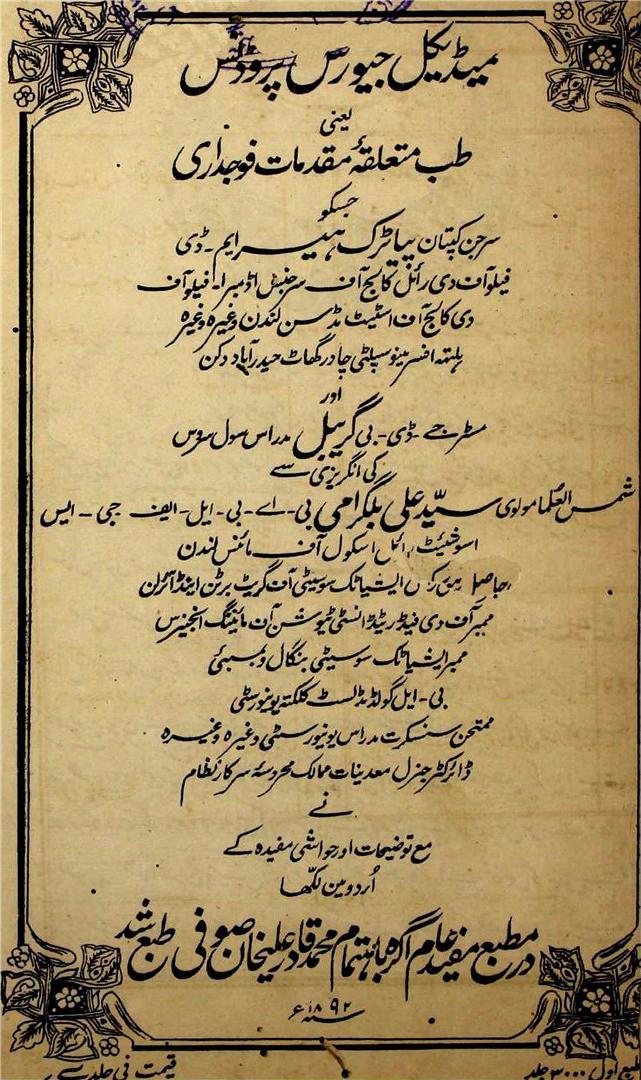 میڈیکل جیورس پروڈنس
یعنی
طب متعلقۂ مقدمات فوجداری
جسکو
سرجن کپتان پیاٹرک ہیر ایم - ڈی
فیلو آف دی رائل کالج آف سرجنس اڈمبرا - فیلو آف
دی کالج آف اسٹیٹ مڈسن لندن وغیرہ وغیرہ
ہلتہ افسر مینوسپلٹی چادرگھاٹ حیدرآباد دکن
اور
مسٹر جے - ڈی - بی گریبل مدراس سول سروس
کی انگریزی سے
شمس العلما مولوی سیّد علی بلگرامی بی - اے - بی - ایل - ایف جی - ایس
اسوشئیٹ رائل اسکول آف مائنس لندن
ایشیاٹک سوسیٹی آف گریٹ برٹن اینڈ آئرلن
ممبر آف دی فیڈریٹڈ انسٹی ٹیوشن آف مائیننگ انجنیرس
ممبر ایشیاٹک سوسیٹی بنگال و بمبئی
بی - ایل گولڈ مڈلسٹ کلکتہ یونیورسٹی
ممتحن سنسکرت مدراس یونیورسٹی وغیرہ وغیرہ
ڈائرکٹر جنرل معدنیات ممالک محروسۂ سرکار نظام
نے
مع توضیحات اور حواشی مفیدہ کے
اُردو مین لکّھا
در مطبع مفید عام آگرہ باہتمام محمد قادر علیخان صوفی طبع شد
سنہ ۱۸۹۲ ء
طبع اول ۳۰۰۰ جلد
قیمت فی جلد سے ر